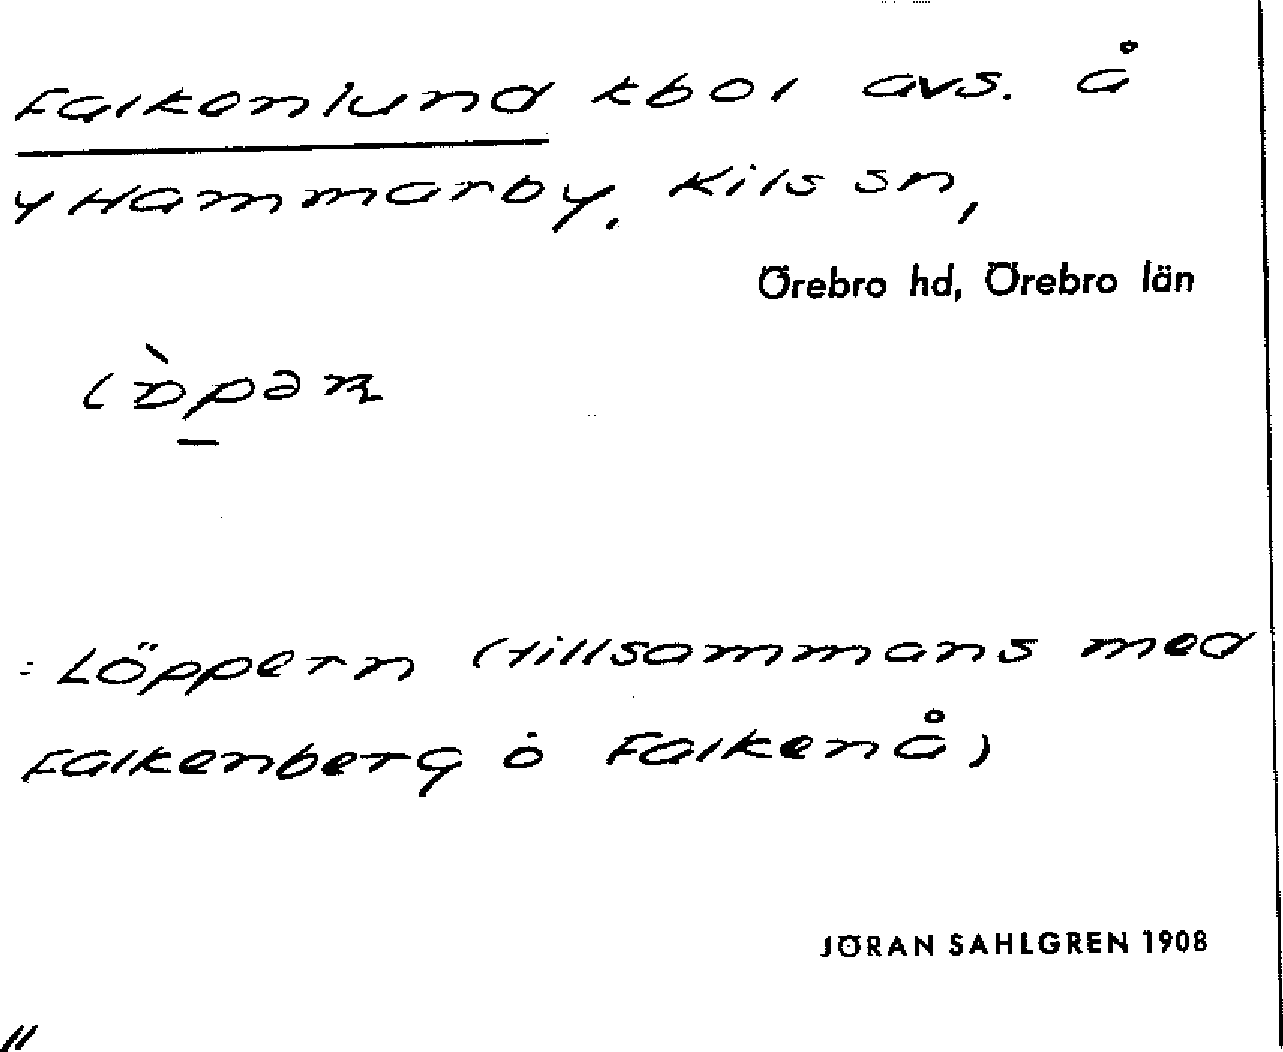 Falkenlund kbol avs. å
Y Hammarby. Kils sn,
Örebro hd, Örebro län
: Löppern (tillsammans med
Falkenberg o Falkenå)
JÖRAN SAHLGREN 1908